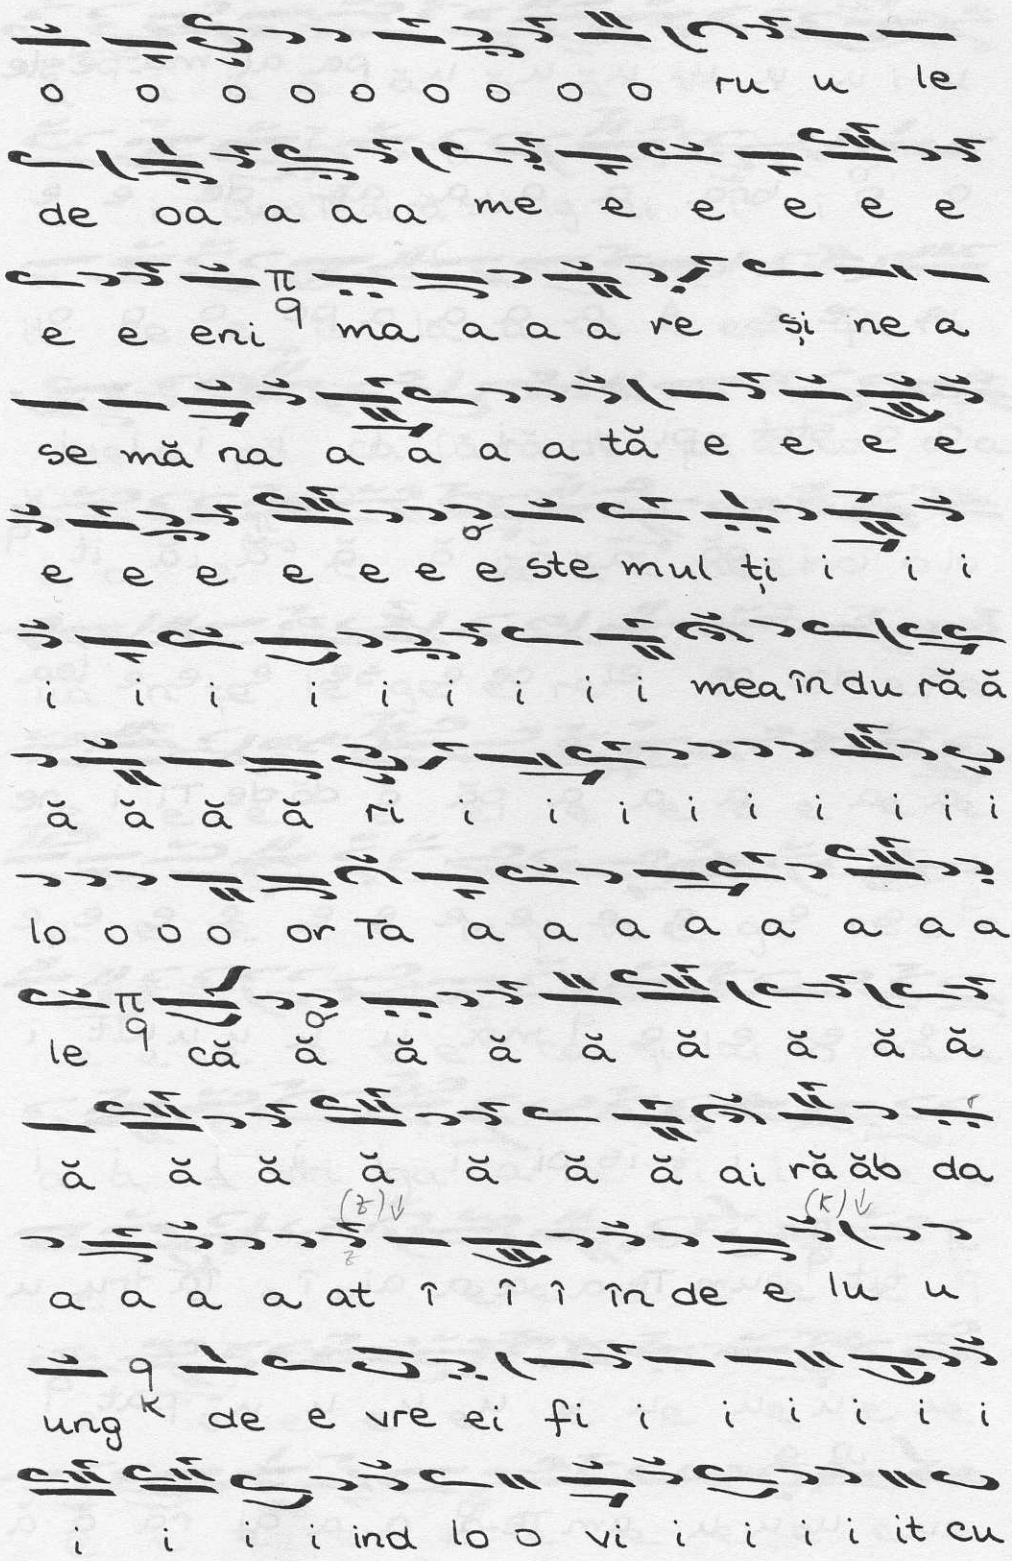 o o o o o o o o o ru u le
de oa a a a me e e e e e
e e eni π q ma a a a re și ne a
se mă na a a a a tă e e e e
e e e e e e e ste mul ți i i i
i i i i i i i i i mea în du ră ă
ă ă ă ă ri i i i i i i i i i
lo o o o or Ta a a a a a a a a
le π q că ă ă ă ă ă ă ă ă
ă ă ă ă ă ă ă ai ră ăb da
(z)↓ z (k)↓
a a a a at î î î în de e lu u
ung q k de e vre ei fi i i i i i i
i i i i ind lo o vi i i i i it cu